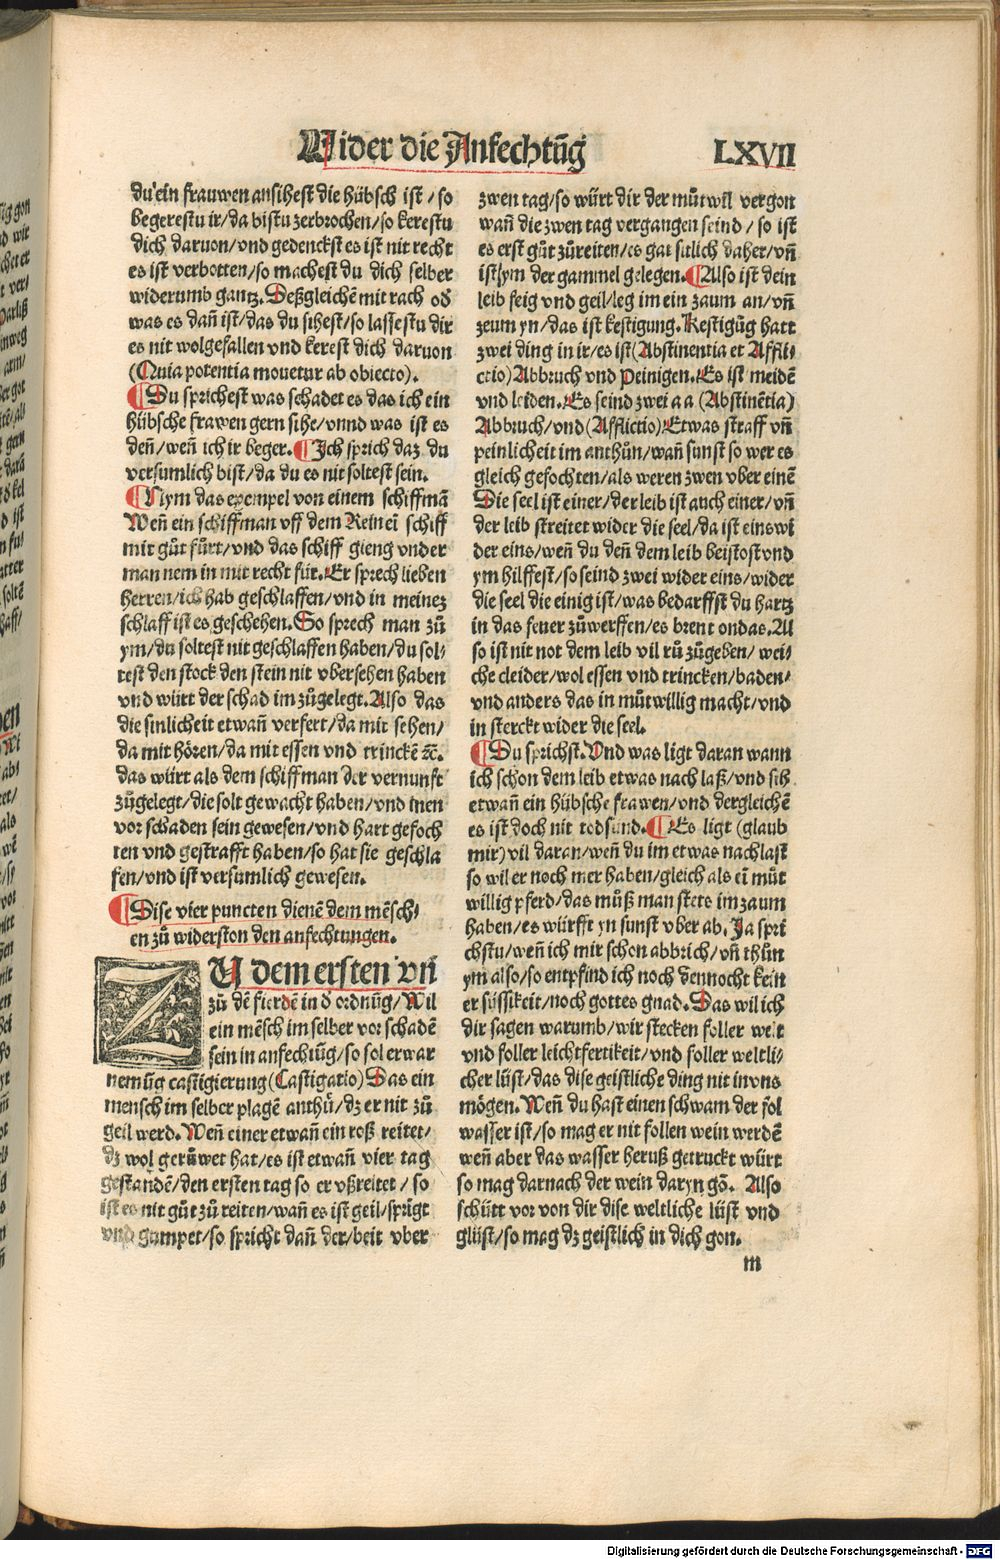 Wider die Anfechtũg LXVII
du ein frauwen ansihest die hübsch ist / so
begerestu ir/da bistu zerbrochen/so kerestu
dich daruon/vnd gedenckst es ist nit recht
es ist verbotten/so machest du dich selber
widerumb gantz. Deßgleichẽ mit rach od̕
was es dañ ist/das du sihest/so lassestu dir
es nit wolgefallen vnd kerest dich daruon
(Quia potentia mouetur ab obiecto).
¶ Du sprichest was schadet es das ich ein
hübsche frawen gern sihe/vnnd was ist es
deñ/weñ ich ir beger. ¶ Ich sprich daz du
versumlich bist/da du es nit soltest sein.
¶ Nym das exempel von einem schiffmã
Weñ ein schiffman vff dem Rein eĩ schiff
mit gůt fůrt/vnd das schiff gieng vnder
man nem in mit recht für. Er sprech lieben
herren/ich hab geschlaffen/vnd in meinez
schlaff ist es geschehen. So sprech man zů
ym/du soltest nit geschlaffen haben/du sol⸗
test den stock den stein nit vbersehen haben
vnd würt der schad im zůgelegt. Also das
die sinlicheit etwañ verfert/da mit sehen/
da mit hören/da mit essen vnd trinckẽ ꝛc.
das würt als dem schiffman der vernunft
zůgelegt/die solt gewacht haben/vnd inen
vor schaden sein gewesen/vnd hart gefoch
ten vnd gestrafft haben/so hat sie geschla
fen/vnd ist versumlich gewesen.
¶ Dise vier puncten dienẽ dem mẽsch⸗
en zů widerston den anfechtungen.
ZU dem ersten vñ
zů dẽ fierdẽ in d̕ ordnũg/Wil
ein mẽsch im selber vor schadẽ
sein in anfechtũg/so sol er war
nemũg castigierung (Castigatio) Das ein
mensch im selber plagẽ anthů/dz er nit zů
geil werd. Weñ einer etwañ ein roß reitet/
dz wol gerůwet hat/es ist etwañ vier tag
gestandẽ/den ersten tag so er vßreitet / so
ist es nit gůt zů reiten/wañ es ist geil/sprĩgt
vnd gumpet/so spricht dañ der/beit vber
zwen tag/so würt dir der můtwil vergon
wañ die zwen tag vergangen seind / so ist
es erst gůt zůreiten/es gat sitlich daher/vñ
ist ym der gammel gelegen. ¶ Also ist dein
leib feig vnd geil/leg im ein zaum an/vñ
zeum yn/das ist kestigung. Kestigũg hatt
zwei ding in ir/es ist (Abstinentia et Affli⸗
ctio) Abbruch vnd Peinigen. Es ist meidẽ
vnd leiden. Es seind zwei a a (Abstinẽtia)
Abbruch/vnd (Afflictio) Etwas straff vñ
peinlicheit im anthůn/wañ sunst so wer es
gleich gefochten/als weren zwen vber einẽ
Die seel ist einer/der leib ist auch einer/vñ
der leib streitet wider die seel/da ist eins wi
der eins/weñ du deñ dem leib beistost vnd
ym hilffest/so seind zwei wider eins/wider
die seel die einig ist/was bedarffst du hartz
in das feuer zůwerffen/es brent on das. Al
so ist nit not dem leib vil rů zůgeben/ wei⸗
che cleider/wol essen vnd trincken/baden⸗
vnd anders das in můtwillig macht/vnd
in sterckt wider die seel.
¶ Du sprichst. Vnd was ligt daran wann
ich schon dem leib etwas nach laß/vnd sih
etwañ ein hübsche frawen/vnd dergleichẽ
es ist doch nit todsund. ¶ Es ligt (glaub
mir) vil daran/weñ du im etwas nachlast
so wil er noch mer haben/gleich als eĩ můt
willig pferd/das můß man stets im zaum
haben/es würfft yn sunst vber ab. Ja spri
chstu/weñ ich mir schon abbrich/vñ thůn
ym also/so entpfind ich noch dennocht kein
er süssikeit/noch gottes gnad. Das wil ich
dir sagen warumb/wir stecken foller welt
vnd foller leichtfertikeit/vnd foller weltli⸗
cher lüst/das dise geistliche ding nit in vns
mögen. Weñ du hast einen schwam der fol
wasser ist/so mag er nit follen wein werdẽ
weñ aber das wasser heruß getruckt würt
so mag darnach der wein daryn gõ. Also
schütt vor von dir dise weltliche lüst vnd
glüst/so mag dz geistlich in dich gon.
m
Digitalisierung gefördert durch die Deutsche Forschungsgemeinschaft - DFG